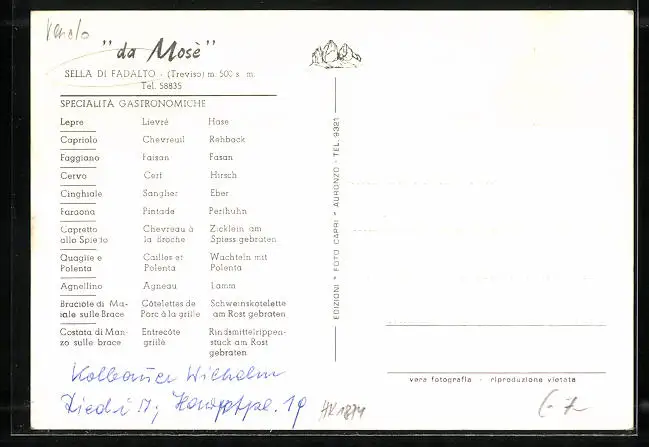 "da Mosè"
SELLA DI FADALTO - (Treviso) m. 500 s. m.
Tel. 58835
SPECIALITÀ GASTRONOMICHE
Lepre Lievré Hase
Capriolo Chevreuil Rehback
Faggiano Faisan Fasan
Cervo Cerf Hirsch
Cinghiale Sanglier Eber
Faraona Pintade Perlhuhn
Capretto Chevreau à Zicklein am
allo Spiedo la Broche Spiess gebraten
Quaglie e Cailles et Wachteln mit
Polenta Polenta Polenta
Agnellino Agneau Lamm
Braciole di Ma- Côtelettes de Schweinskotelette
iale sulle Brace Porc à la grille am Rost gebraten
Costata di Man- Entrecôte Rindsmittelrippen-
zo sulle brace grillè stuck am Rost
gebraten
Wilhelm
19
HK1874
EDIZIONI * FOTO CAPRI * AURONZO - TEL. 9321
vera fotografia - riproduzione vietata